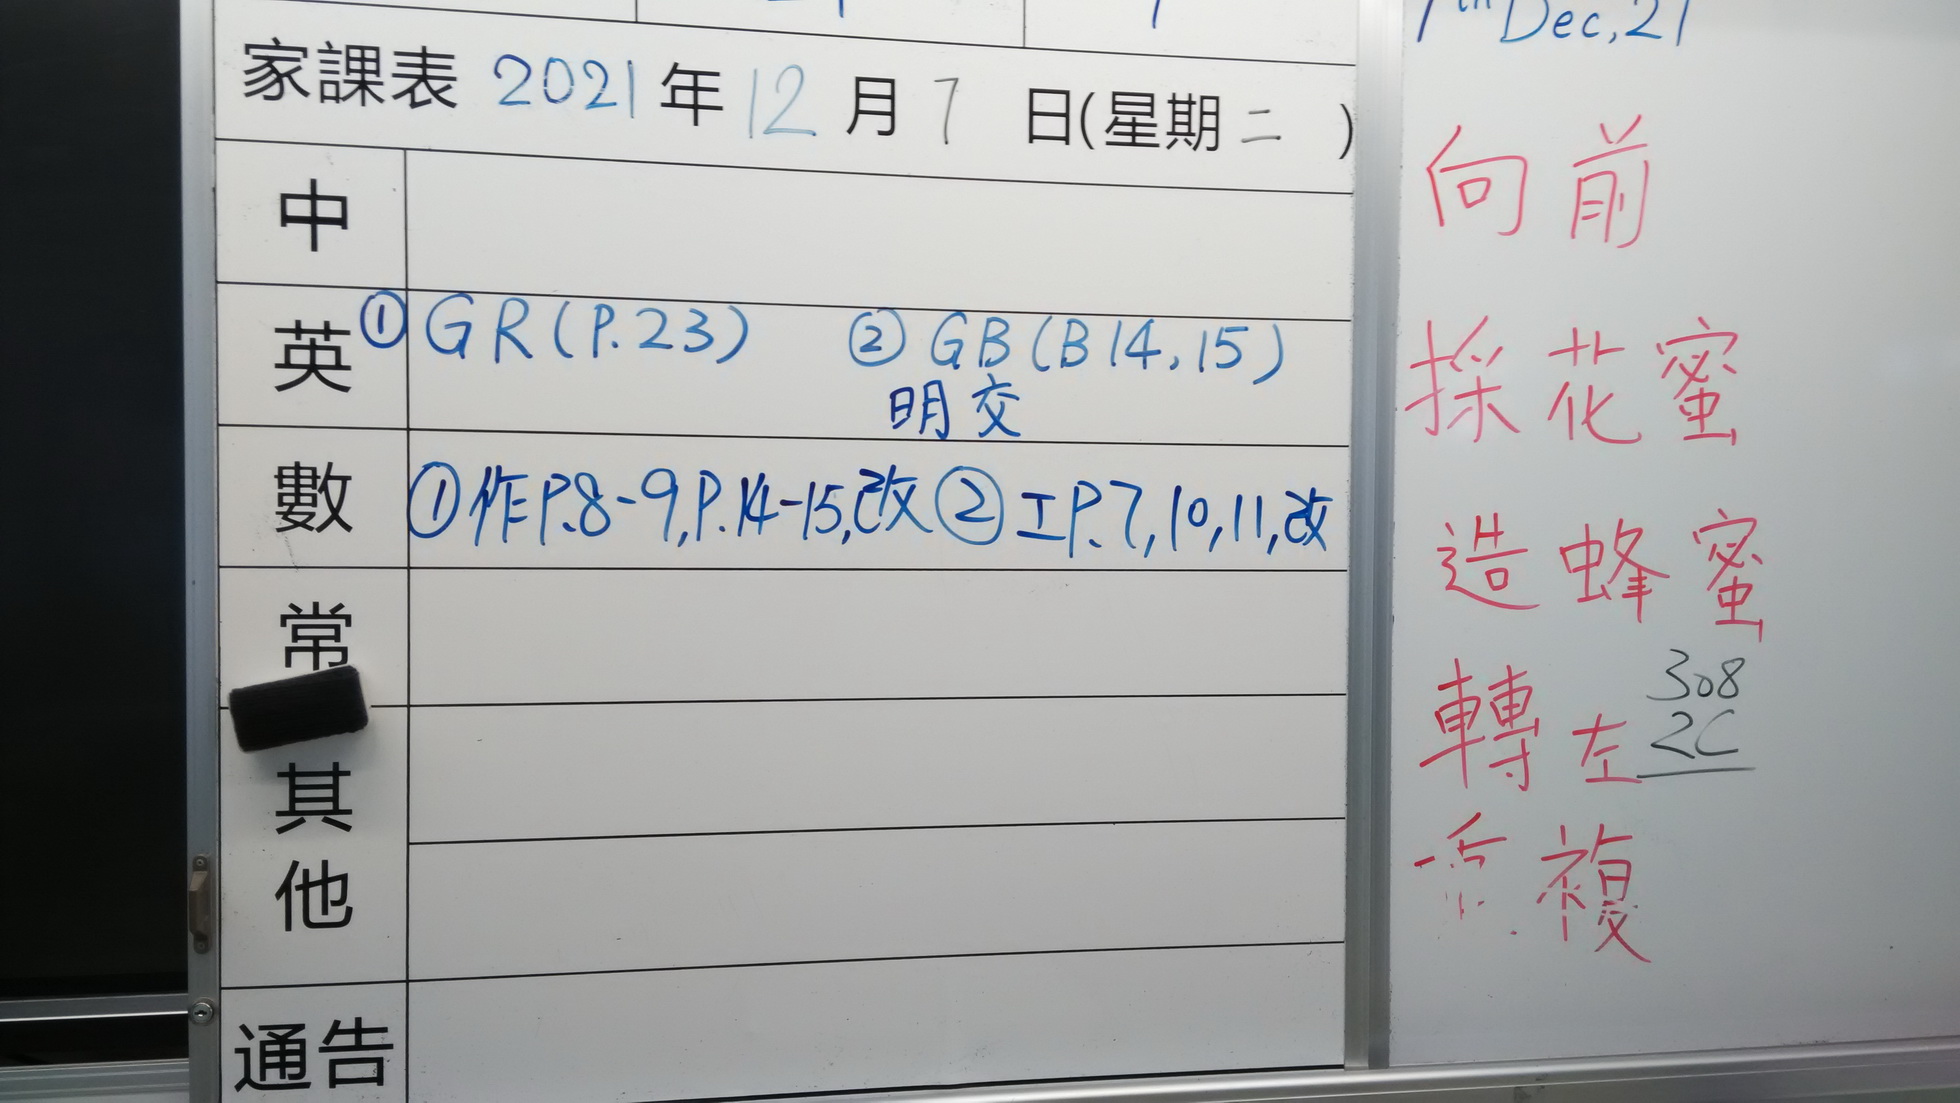 家課表 2021年12月7日(星期二)
中
英 ① GR(P.23) ② GB(B14,15)
明交
數 ①作P.8-9,P.14-15,改②工P.7,10,11,改
常
其他
通告
7th Dec,21
向前
採花蜜
造蜂蜜
轉左
308
2C
重複